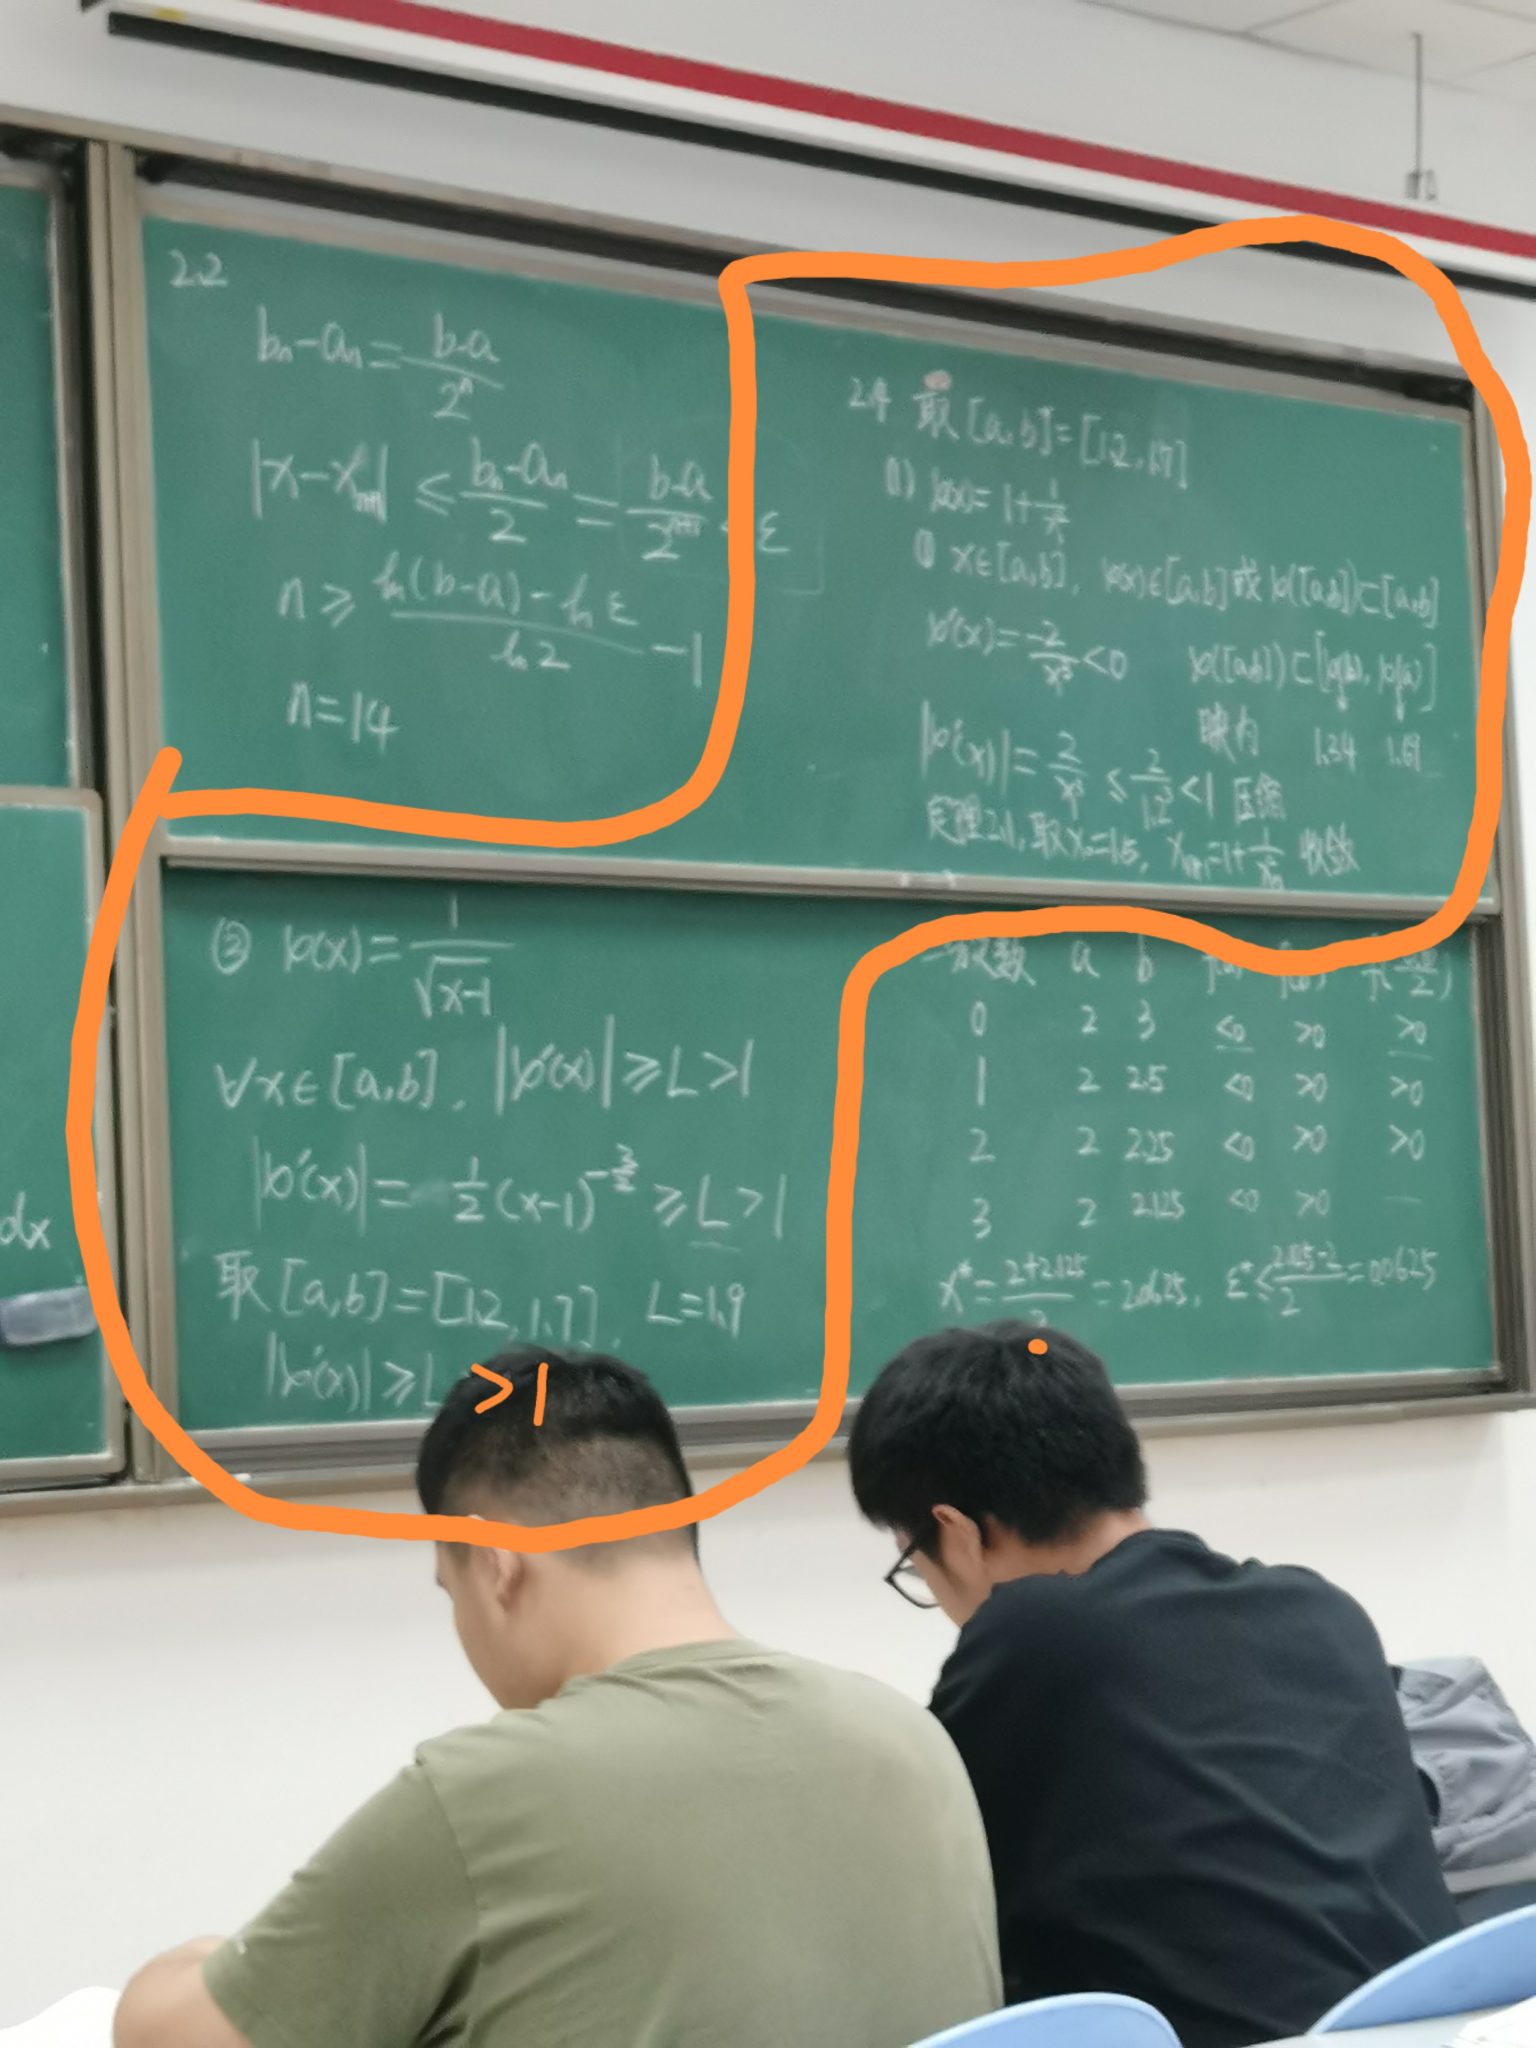 2.2
bₙ-aₙ=\frac{b-a}{2ⁿ}
|x-xₙ₊₁| ≤ \frac{bₙ-aₙ}{2} = \frac{b-a}{2ⁿ⁺¹} < ε
n ≥ \frac{ln(b-a)-lnε}{ln2} -1
n=14
2.4 取[a,b]=[1.2,1.7]
(1) φ(x)=1+\frac{1}{x²}
① x∈[a,b], φ(x)∈[a,b]或φ([a,b])⊂[a,b]
φ'(x)=\frac{-2}{x³}<0 φ([a,b])⊂[φ(b),φ(a)]
映内 1.34 1.69
|φ'(x)|=\frac{2}{x³} ≤ \frac{2}{1.2³}<1 压缩
定理2.1,取x₀=1.5, xₙ₊₁=1+\frac{1}{xₙ²} 收敛
③ φ(x)=\frac{1}{\sqrt{x-1}}
∀x∈[a,b], |φ'(x)|≥L>1
|φ'(x)|= \frac{1}{2}(x-1)^{-\frac{3}{2}} ≥L>1
取[a,b]=[1.2,1.7], L=1.9
|φ'(x)|≥L >1
二分次数 a b
0 2 3 <0 >0 >0
1 2 2.5 <0 >0 >0
2 2 2.25 <0 >0 >0
3 2 2.125 <0 >0 —
x*=\frac{2+2.125}{2}=2.0625, ε*≤\frac{2.125-2}{2}=0.0625
dx